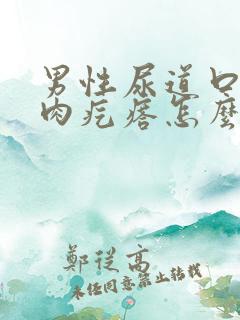 男性尿道口
肉疙瘩怎麼
鄭從高
未經同意禁止轉載